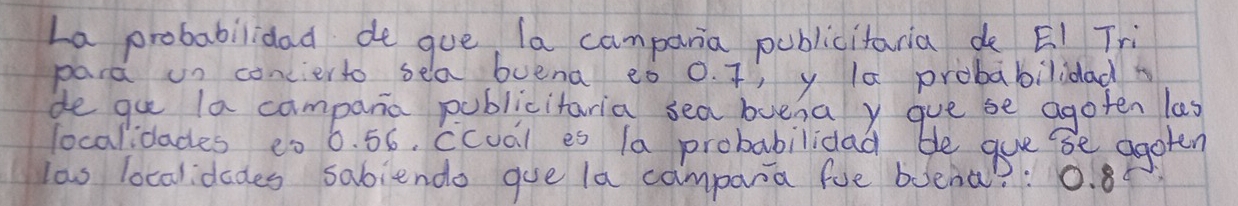 La probabilidad de que la campaña publicitaria de El Tri
para un concierto sea buena es 0.7, y la probabilidad
de que la campaña publicitaria sea buena y que se agoten las
localidades es 0.56. ¿Cuál es la probabilidad de que se agoten
las localidades sabiendo que la campaña fue buena?: 0.8